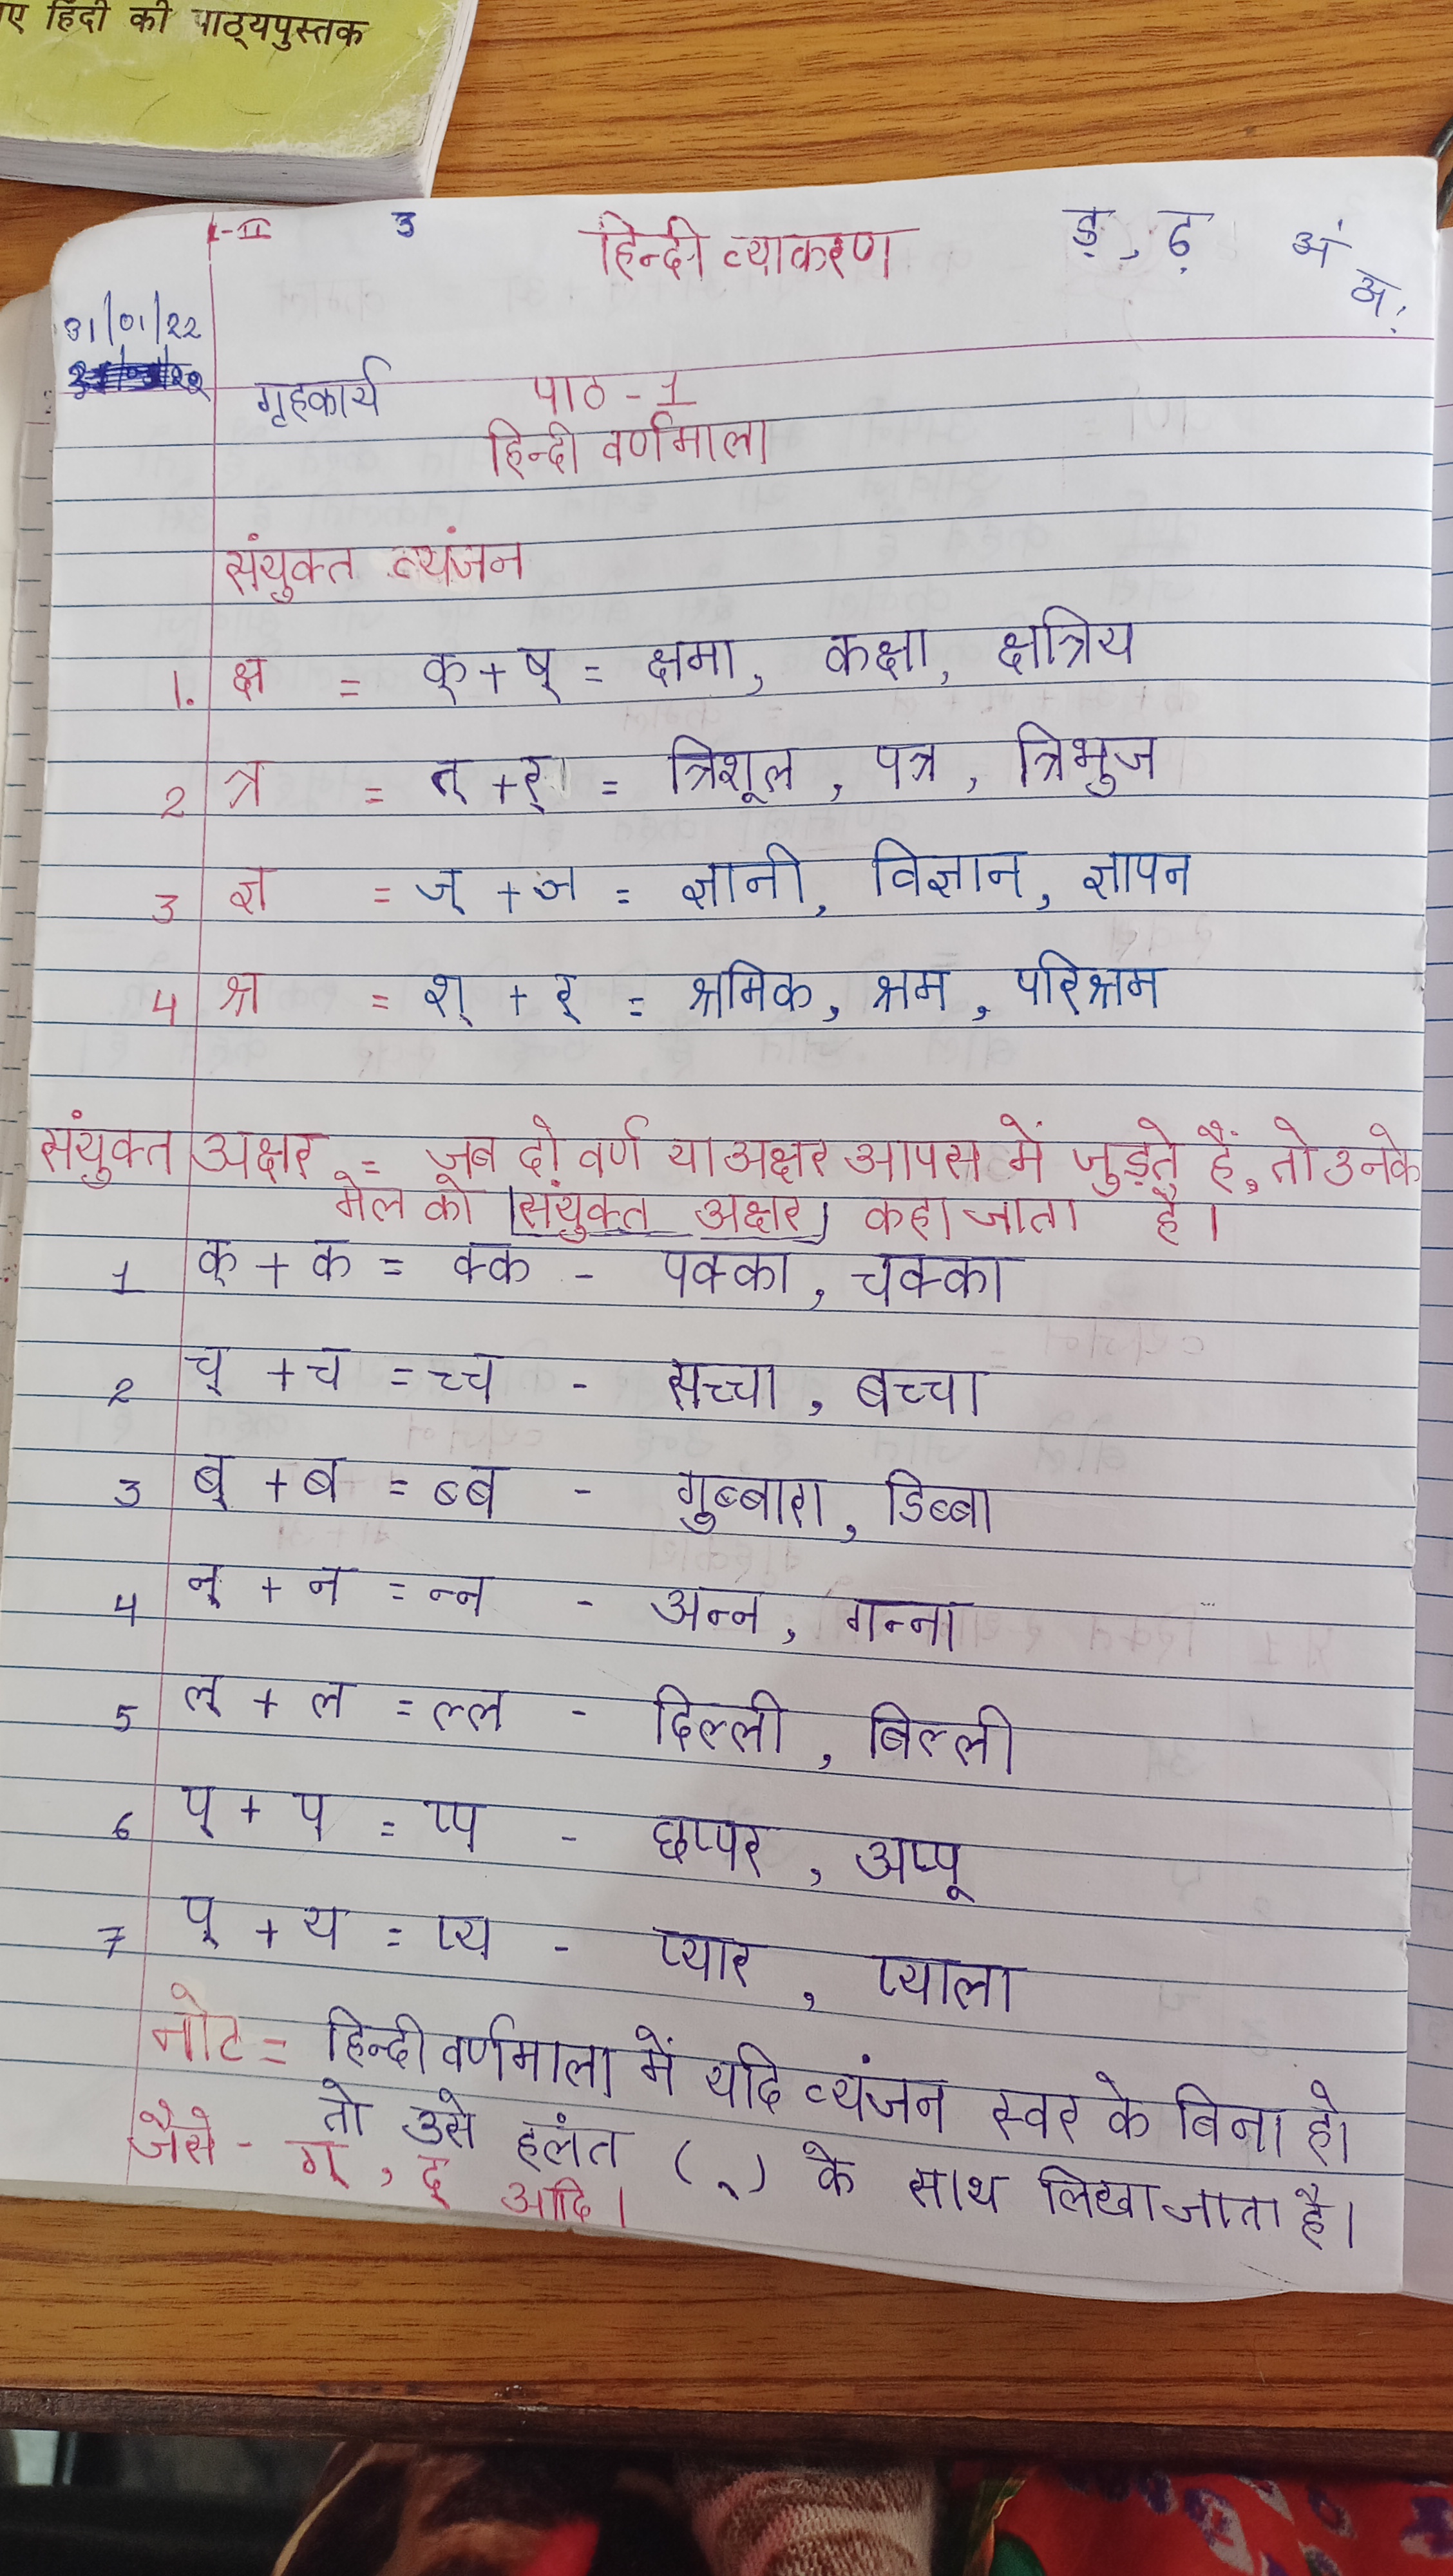 ए हिंदी की पाठ्यपुस्तक
L-II 3 हिन्दी व्याकरण ड़, ढ़ अं
अ:
31/01/22
गृहकार्य पाठ - 1
हिन्दी वर्णमाला
संयुक्त व्यंजन
1. क्ष = क् + ष् = क्षमा, कक्षा, क्षत्रिय
2 त्र = त् + र् = त्रिशूल, पत्र, त्रिभुज
3 ज्ञ = ज् + ञ = ज्ञानी, विज्ञान, ज्ञापन
4 श्र = श् + र् = श्रमिक, श्रम, परिश्रम
संयुक्त अक्षर = जब दो वर्ण या अक्षर आपस में जुड़ते हैं, तो उनके
मेल को संयुक्त अक्षर कहा जाता है।
1 क् + क = क्क - पक्का, चक्का
2 च् + च = च्च - सच्चा, बच्चा
3 ब् + ब = ब्ब - गुब्बारा, डिब्बा
4 न् + न = न्न - अन्न, गन्ना
5 ल् + ल = ल्ल - दिल्ली, बिल्ली
6 प् + प = प्प - छप्पर, अप्पू
7 प् + य = प्य - प्यार, प्याला
नोट = हिन्दी वर्णमाला में यदि व्यंजन स्वर के बिना हो
तो उसे हलंत (्) के साथ लिखा जाता है।
जैसे - ग्, द् आदि।